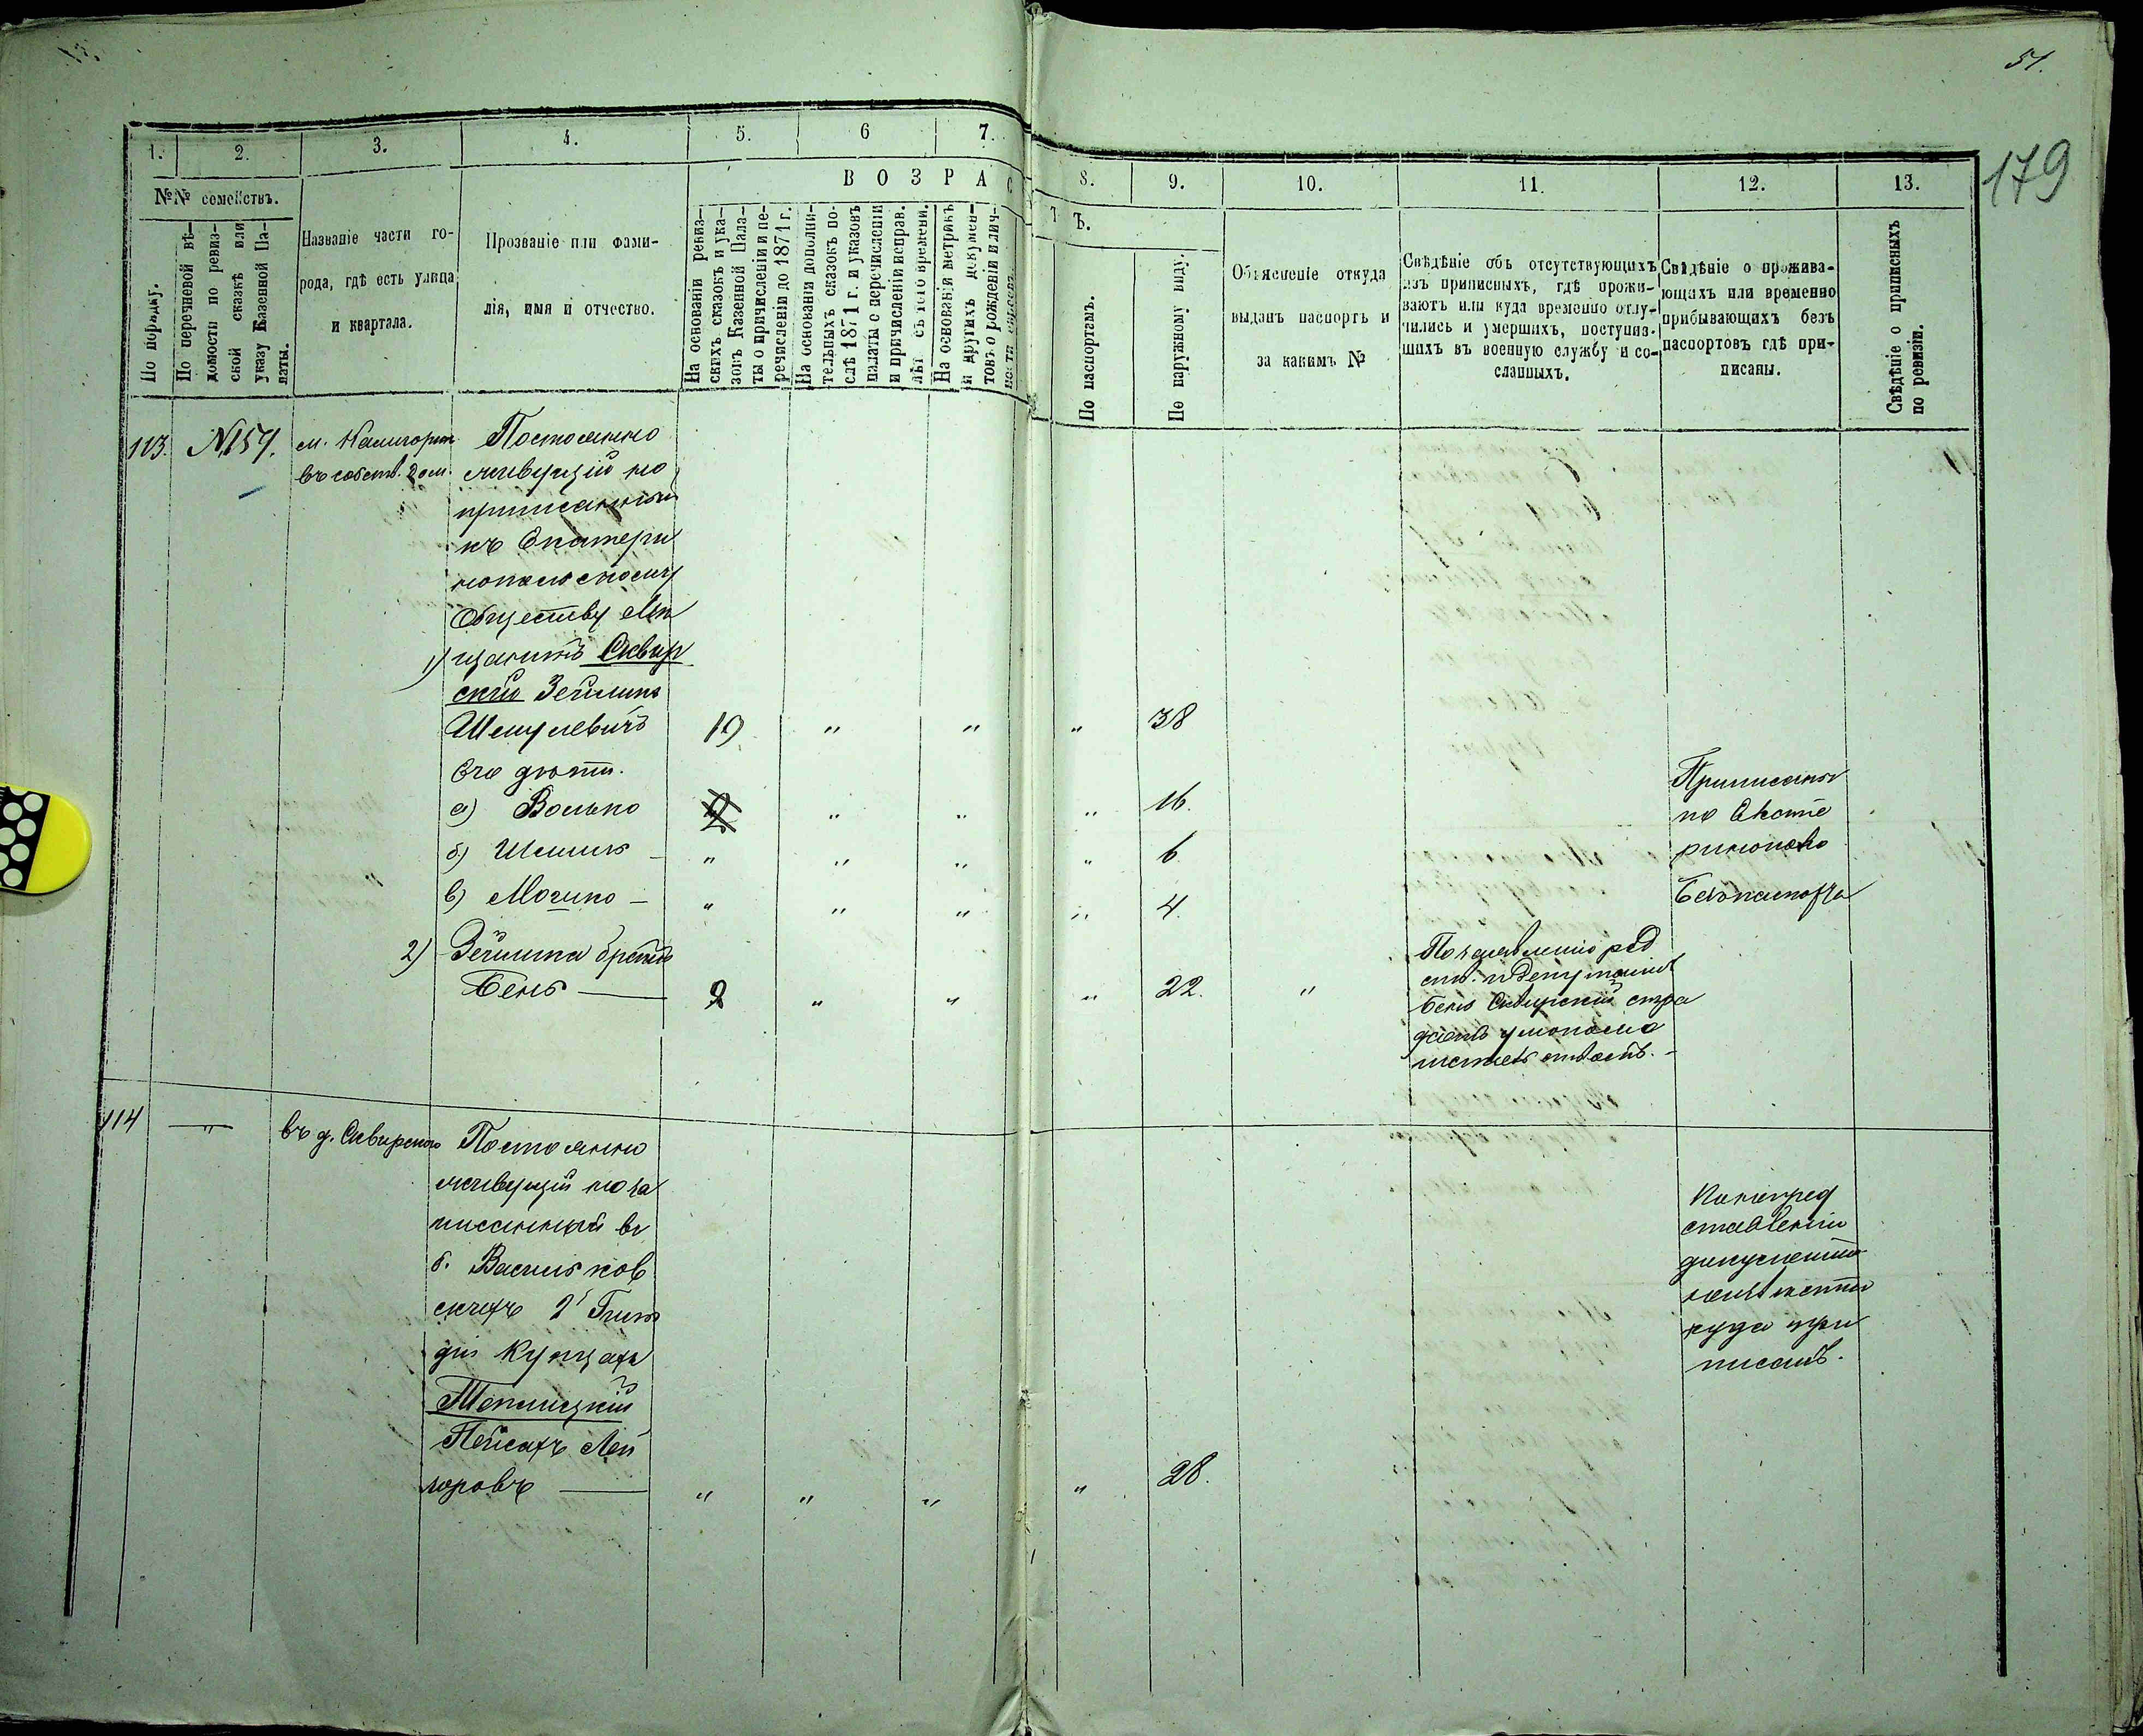 51.
179
1. 2. 3. 4. 5. 6 7.
8. 9. 10. 11. 12. 13.
№№ семействъ.
ВОЗРАС
Т Ъ.
По порядку.
По перечневой вѣ-
домости по ревиз-
ской сказкѣ или
указу Казенной Па-
латы.
Названіе части го-
рода, гдѣ есть улица
и квартала.
Прозваніе или фами-
лія, имя и отчество.
На основаніи ревиз-
скихъ сказокъ и ука-
зовъ Казенной Пала-
ты о причисленіи и пе-
речисленіи до 1871 г.
На основаніи дополни-
тельныхъ сказокъ по-
слѣ 1871 г. и указовъ
палаты о перечисленіи
и причисленіи исправ.
лѣт съ того времени.
На основаніи метрикъ
и другихъ докумен-
товъ о рожденіи и лич-
По паспортамъ.
По наружному виду.
Объясненіе откуда
выданъ паспортъ и
за какимъ №
Свѣдѣніе объ отсутствующихъ
изъ приписныхъ, гдѣ прожи-
ваютъ или куда временно отлу-
чились и умершихъ, поступив-
шихъ въ военную службу и со-
сланныхъ.
Свѣдѣніе о прожива-
ющихъ или временно
прибывающихъ безъ
паспортовъ гдѣ при-
писаны.
Свѣдѣніе о приписныхъ
по ревизіи.
113. №157. м. Калигорк
въ собств. дом.
Постоянно
живущій но
приписанный
къ Екатери
нопольскому
Обществу Мѣ
1) щанинъ Сквир
скій Зейлигъ
Шмулевичъ 19 " " " 38
Его дѣти.
а) Волько 2 " " " 16.
б) Шмиль - " " " " 6
в) Мошко - " " " " 4.
Приписаны
по Екате
ринополю
Безъ паспорта
2) Зейлига братъ
Бень 2 " " " 22. "
По заявленію род
ств. и депутатовъ
Бень Сквирскій стра
даетъ умопомѣ
шательствомъ. -
114 " въ д. Сквирскаго
Постоянно
живущій но за
писанный въ
г. Васильков
скихъ 2й Гиль
діи Купцахъ
Теплицкій
Пейсахъ Лей
зоровъ " " " " 28.
По непред
ставленію
документа
куда при
писанъ.